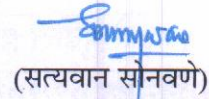 (सत्यवान सोनवणे)